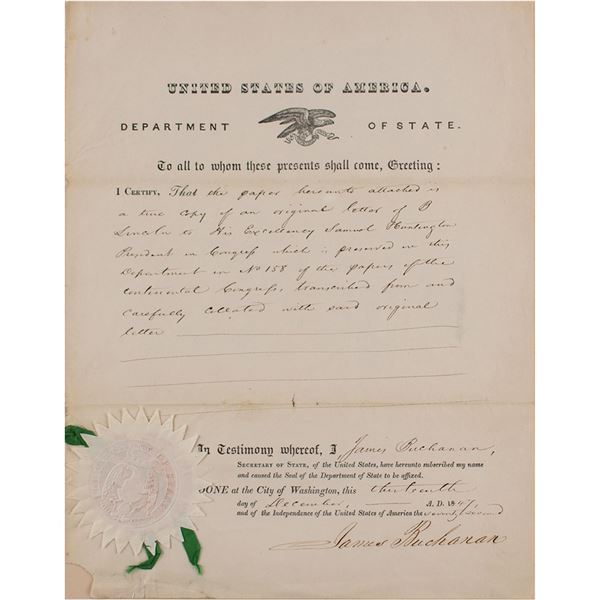 UNITED STATES OF AMERICA.
DEPARTMENT OF STATE.
To all to whom these presents shall come, Greeting:
I CERTIFY, That the paper hereunto attached is
a true copy of an original letter of B
Lincoln to His Excellency Samuel Huntington
President in Congress which is preserved in this
Department in No 158 of the papers of the
continental Congress, transcribed from and
carefully collated with said original
letter
In Testimony whereof, I James Buchanan,
SECRETARY OF STATE, of the United States, have hereunto subscribed my name
and caused the Seal of the Department of State to be affixed.
DONE at the City of Washington, this thirteenth
day of December, A. D. 1847,
and of the Independence of the United States of America the seventy second
James Buchanan